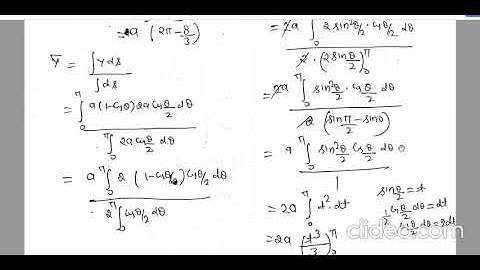 = a (2π - 8/3)
ȳ = ∫ y ds / ∫ ds
= ∫₀^π a (1-cosθ) 2a cos θ/2 dθ / ∫₀^π 2a cos θ/2 dθ
= a ∫₀^π 2 (1-cosθ) cos θ/2 dθ / 2 ∫₀^π cos θ/2 dθ
= 2a ∫₀^π 2 sin² θ/2 · cos θ/2 dθ / 2 · (2 sin θ/2)₀^π
= 2a ∫₀^π sin² θ/2 · cos θ/2 dθ / 2 (sin π/2 - sin 0)
= a ∫₀^π sin² θ/2 cos θ/2 dθ / 1
sin θ/2 = t
= 2a ∫₀^π t² · dt
1/2 cos θ/2 dθ = dt
cos θ/2 dθ = 2dt
= 2a (t³/3)₀^π
clideo.com